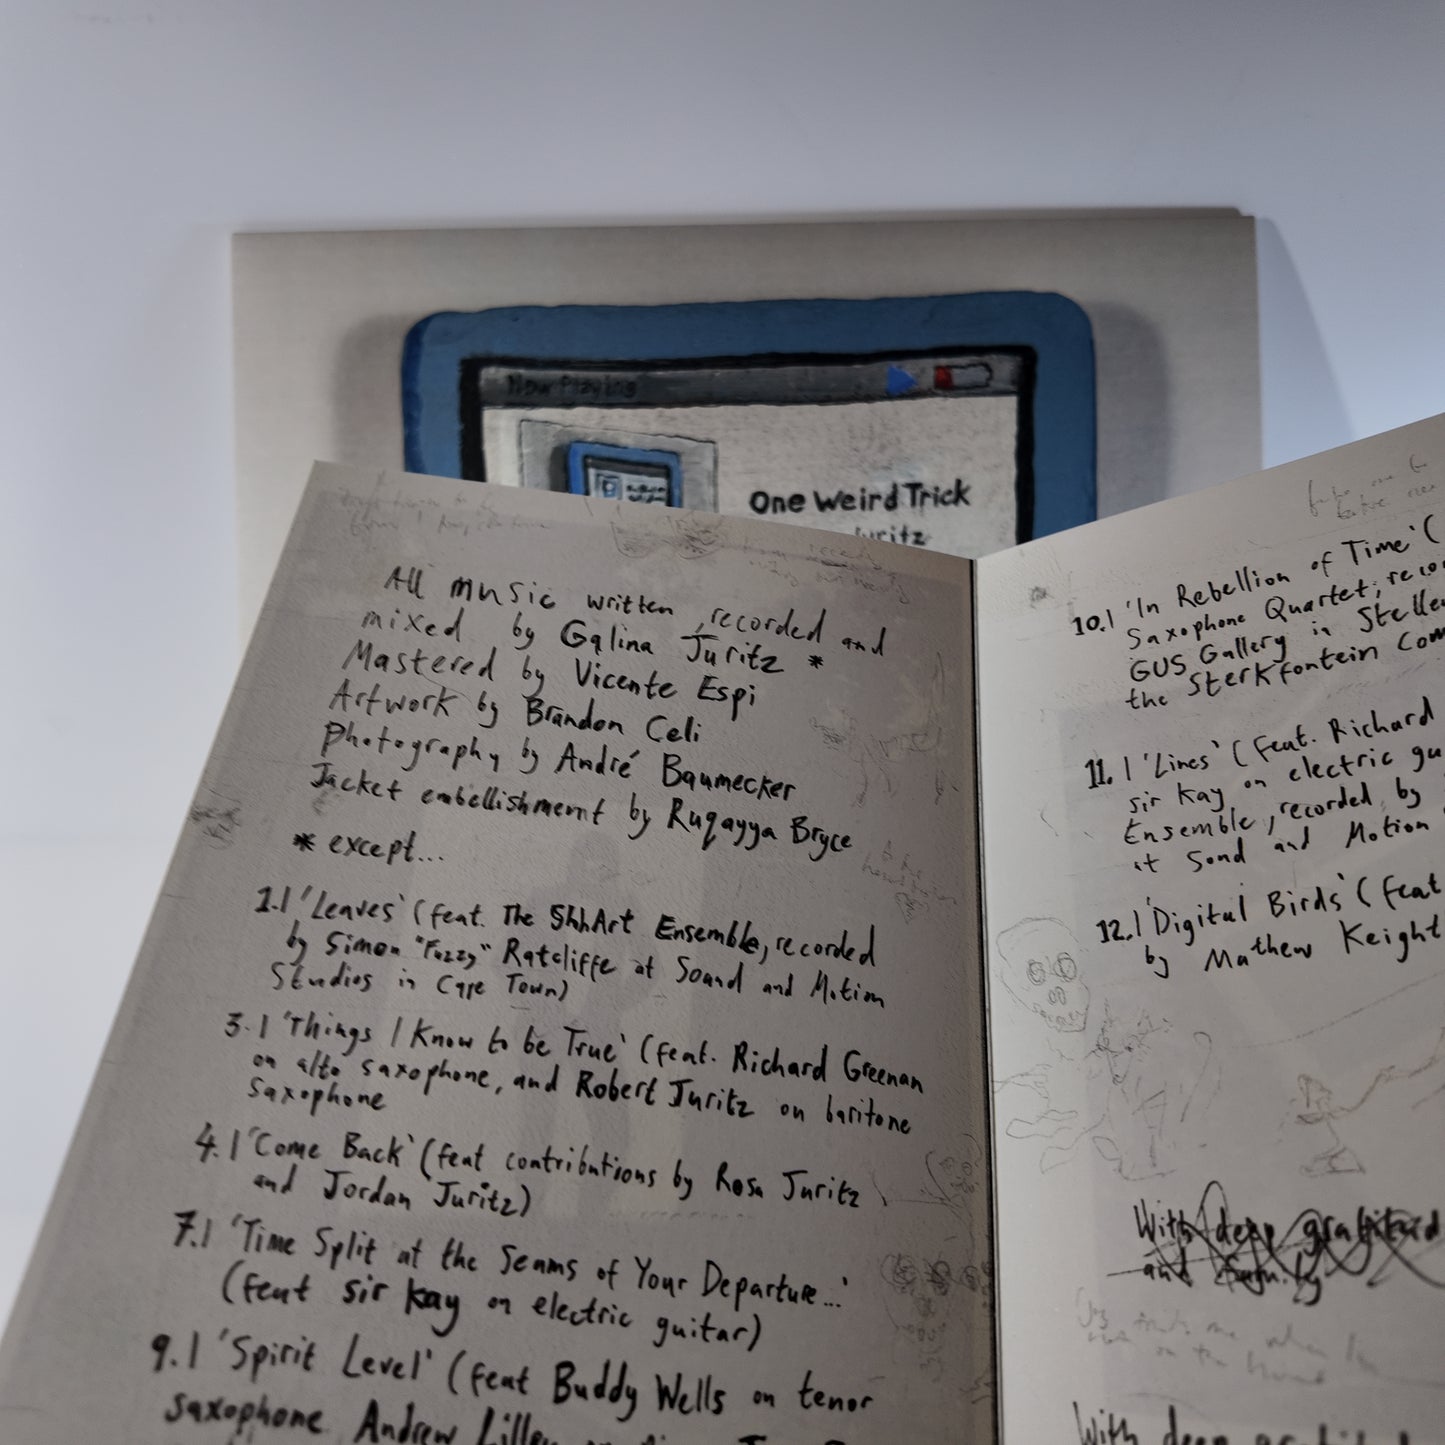 Now Playing
One Weird Trick
Juritz
All music written, recorded and
mixed by Galina Juritz *
Mastered by Vicente Espi
Artwork by Brandon Celi
Photography by André Baumecker
Jacket embellishment by Ruqayya Bryce
* except...
1.1 'Leaves' (feat. The ShhArt Ensemble, recorded
by Simon "Fuzzy" Ratcliffe at Sound and Motion
Studios in Cape Town)
3.1 'Things I Know to be True' (feat. Richard Greenan
on alto saxophone, and Robert Juritz on baritone
saxophone
4.1 'Come Back' (feat contributions by Rosa Juritz
and Jordan Juritz)
7.1 'Time Split at the Seams of Your Departure...'
(feat sir kay on electric guitar)
9.1 'Spirit Level' (feat Buddy Wells on tenor
saxophone Andrew Lilley
10.1 'In Rebellion of Time' (
Saxophone Quartet, reco
GUS Gallery in Stelle
the Sterkfontein Com
11.1 'Lines' (feat. Richard
sir kay on electric gu
Ensemble, recorded by
at Sond and Motion
12.1 'Digital Birds' (feat
by Mathew Keight
With deep gratitud
and family
With deep